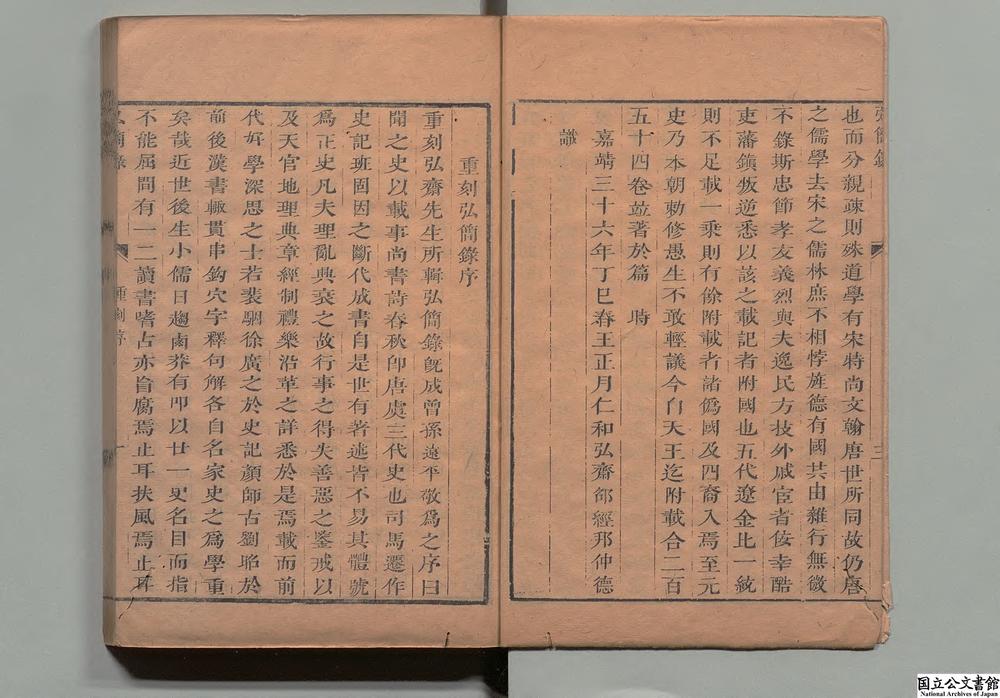 弘簡錄
三
也而分親疎則殊道學有宋特尚文翰唐世所同故仍唐
之儒學去宋之儒林庶不相悖旌德有國共由雜行無微
不錄斯忠節孝友義烈與夫逸民方技外戚宦者佞幸酷
吏藩鎮叛逆悉以該之載記者附國也五代遼金比一統
則不足載一乘則有餘附載者諸僞國及四裔入焉至元
史乃本朝勅修愚生不敢輕議今自天王迄附載合二百
五十四卷並著於篇 時
嘉靖三十六年丁巳春王正月仁和弘齋邵經邦仲德
譔
重刻弘簡錄序
重刻弘齋先生所輯弘簡錄旣成曾孫遠平敬爲之序曰
聞之史以載事尚書詩春秋卽唐虞三代史也司馬遷作
史記班固因之斷代成書自是世有著述皆不易其體號
爲正史凡夫理亂興衰之故行事之得失善惡之鑒戒以
及天官地理典章經制禮樂沿革之詳悉於是焉載而前
代好學深思之士若裴駰徐廣之於史記顏師古劉昭於
前後漢書輙貫串鈎穴字釋句解各自名家史之爲學重
矣哉近世後生小儒日趨鹵莽有叩以廿一史名目而指
不能屈間有一二讀書嗜古亦盲腐焉止耳扶風焉止耳
弘簡錄
重刻序
一
国立公文書館
National Archives of Japan